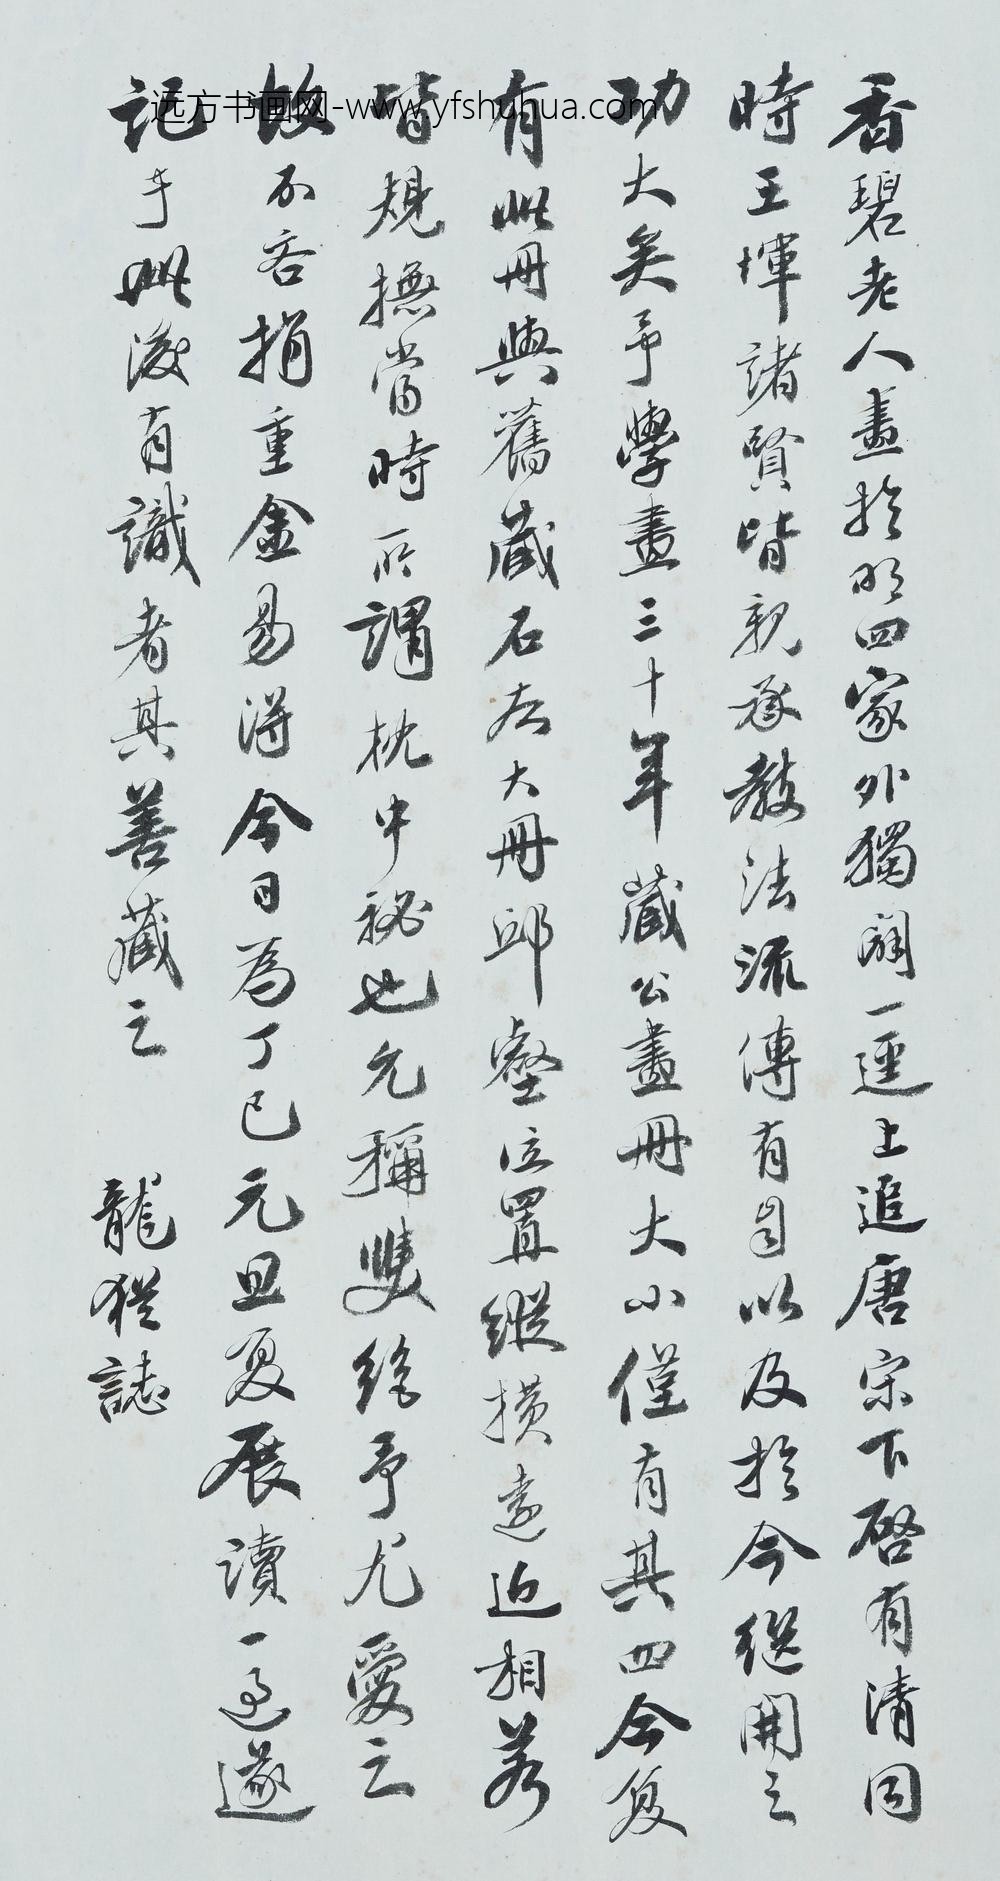 远方书画网-www.yfshuhua.com
香碧老人畫於明四家外獨闢一逕上追唐宋下啓有清同
時王惲諸賢皆親承教法流傳有自以及於今繼開之
功大矣予學畫三十年藏公畫冊大小僅有其四今復
有此冊與舊藏石友大冊邱壑位置縱横遠近相若
皆規撫當時所謂枕中祕也尤稱雙絶予尤愛之
故不吝捐重金易得今日為丁巳元旦夏展讀一過遂
記于此後有識者其善藏之
龍 誌